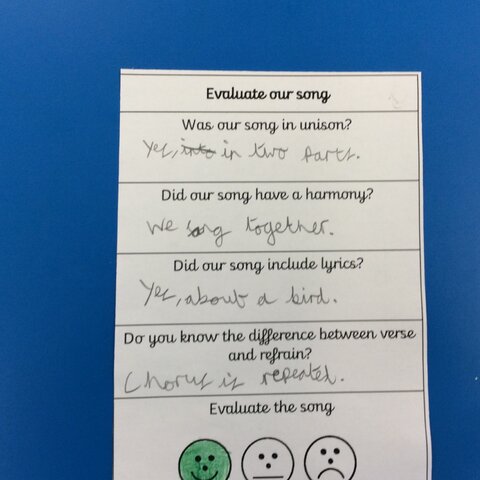 Evaluate our song
Was our song in unison?
Yes, into in two parts.
Did our song have a harmony?
We sang together.
Did our song include lyrics?
Yes, about a bird.
Do you know the difference between verse
and refrain?
Chorus is repeated.
Evaluate the song